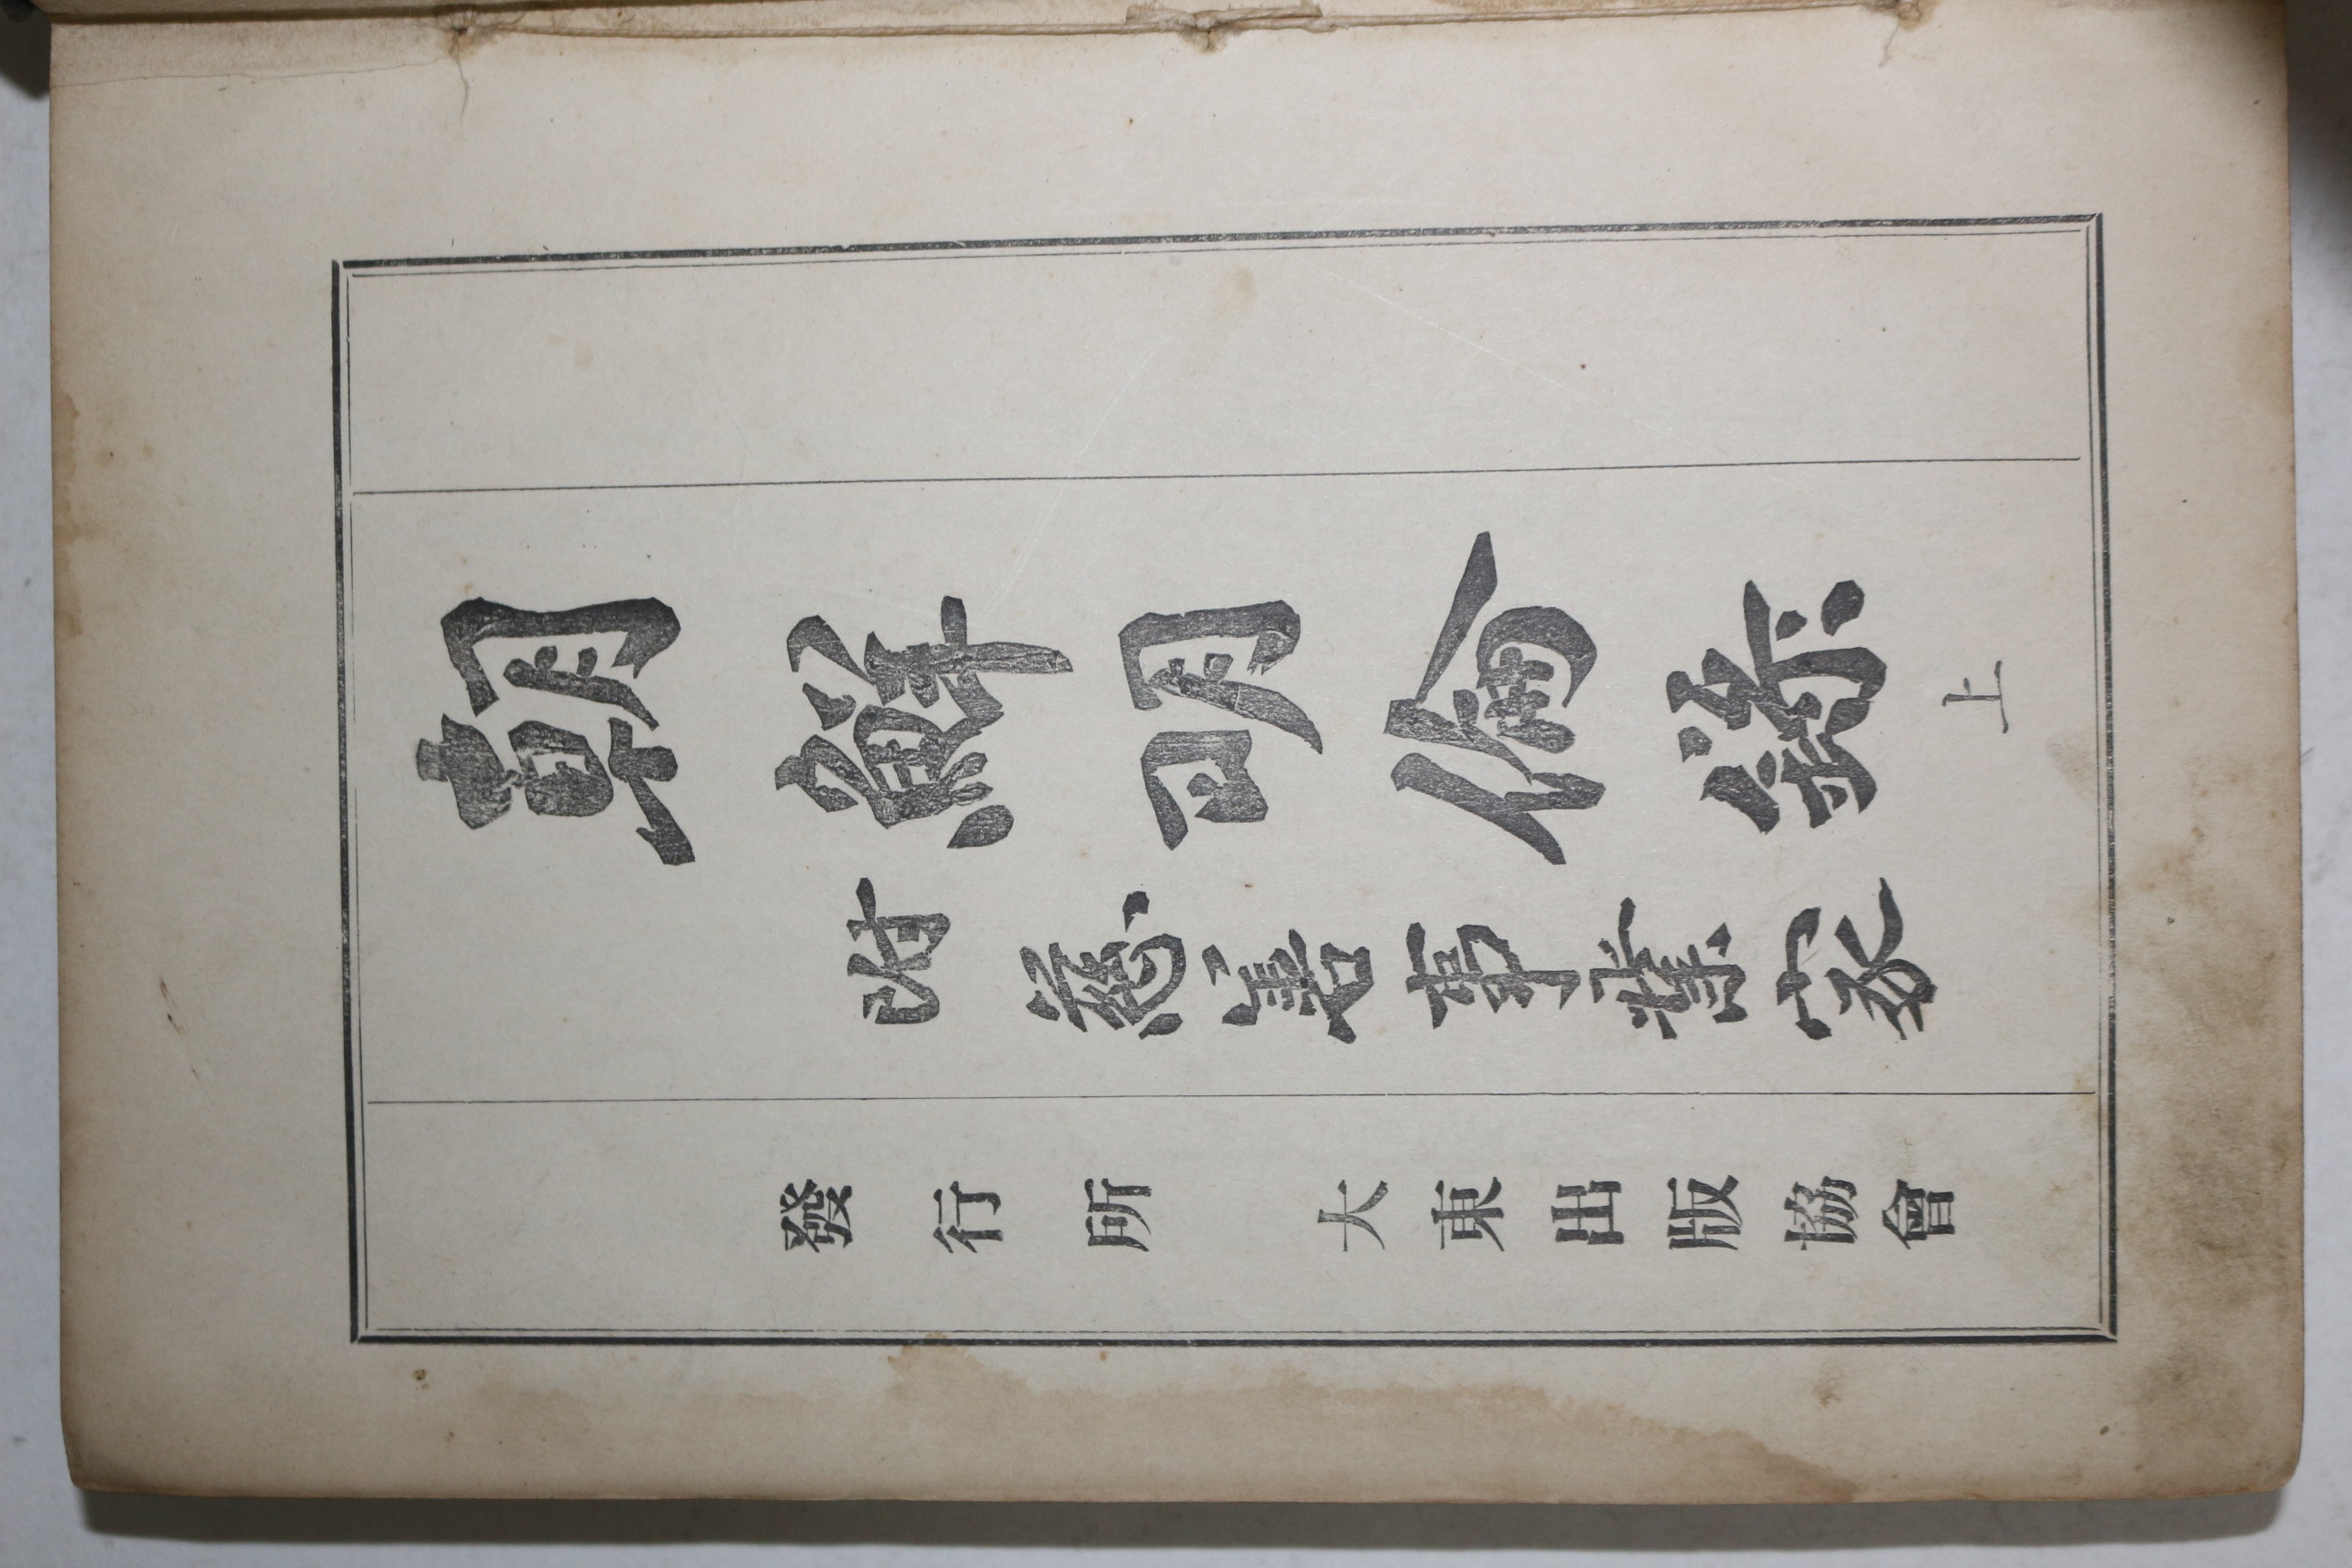 朝鮮明倫錄 上
附 慈善事業家
發行所 大東出版協會